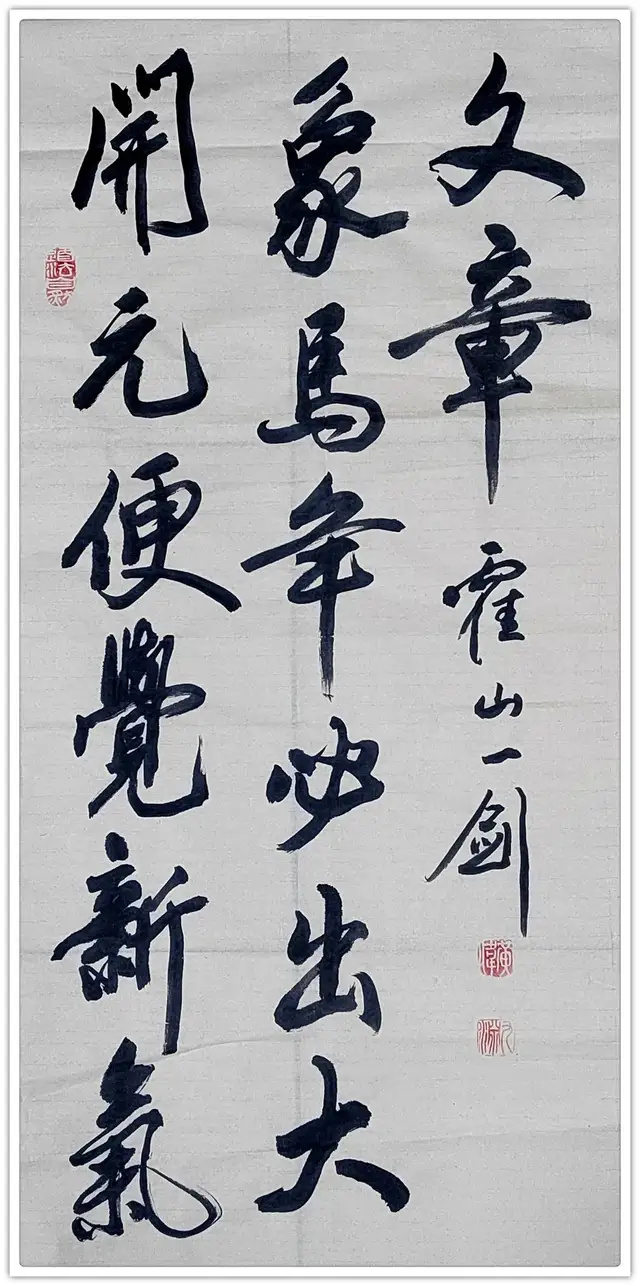 開元便覺新氣
象馬年必出大
文章
霍山一劍